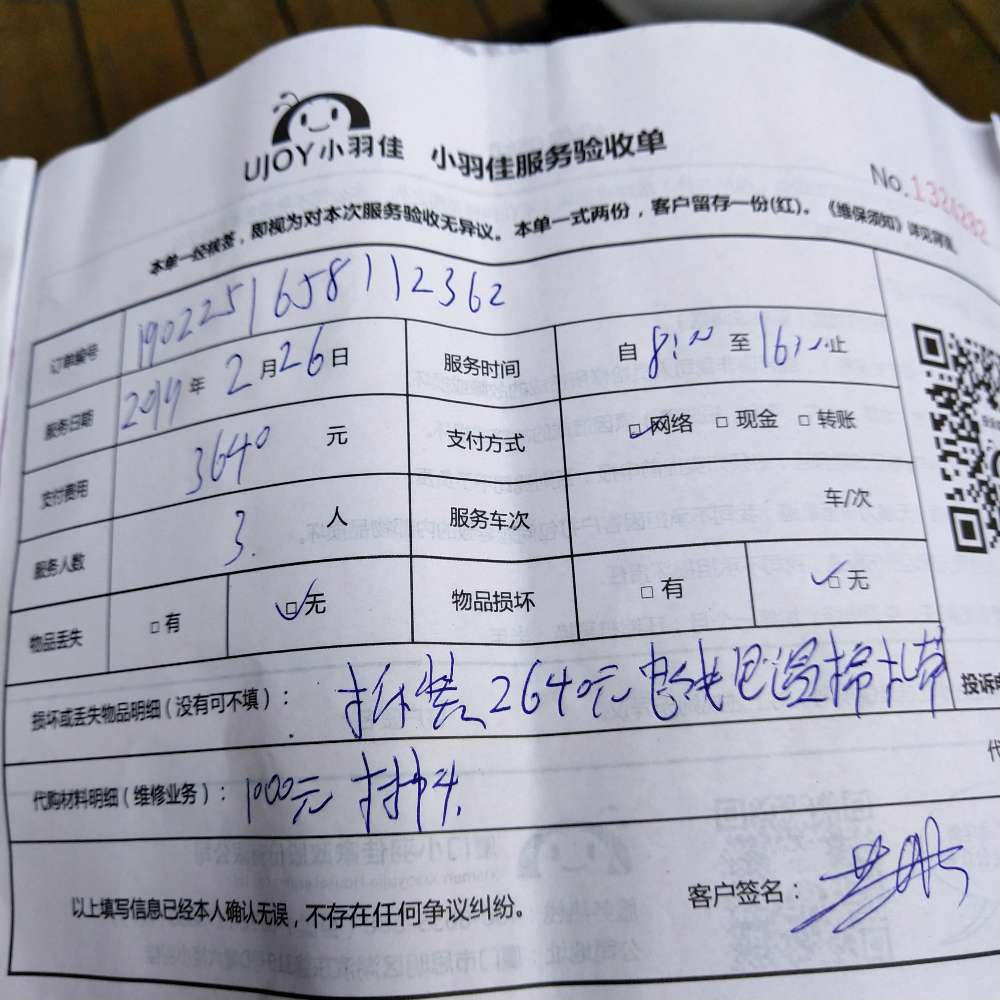 UJOY小羽佳 小羽佳服务验收单
No.1324282
本单一经核签，即视为对本次服务验收无异议。本单一式两份，客户留存一份(红)。《维保须知》详见背面
订单编号 190225165811 2362
服务日期 2019年2月26日 服务时间 自8:00至16:00止
支付费用 3640元 支付方式 □网络 □现金 □转账
服务人数 3.人 服务车次 车/次
物品丢失 □有 □无 物品损坏 □有 □无
损坏或丢失物品明细(没有可不填)： 拆装2640元
投诉电
代购材料明细(维修业务)： 1000元 材料
代
以上填写信息已经本人确认无误，不存在任何争议纠纷。 客户签名：